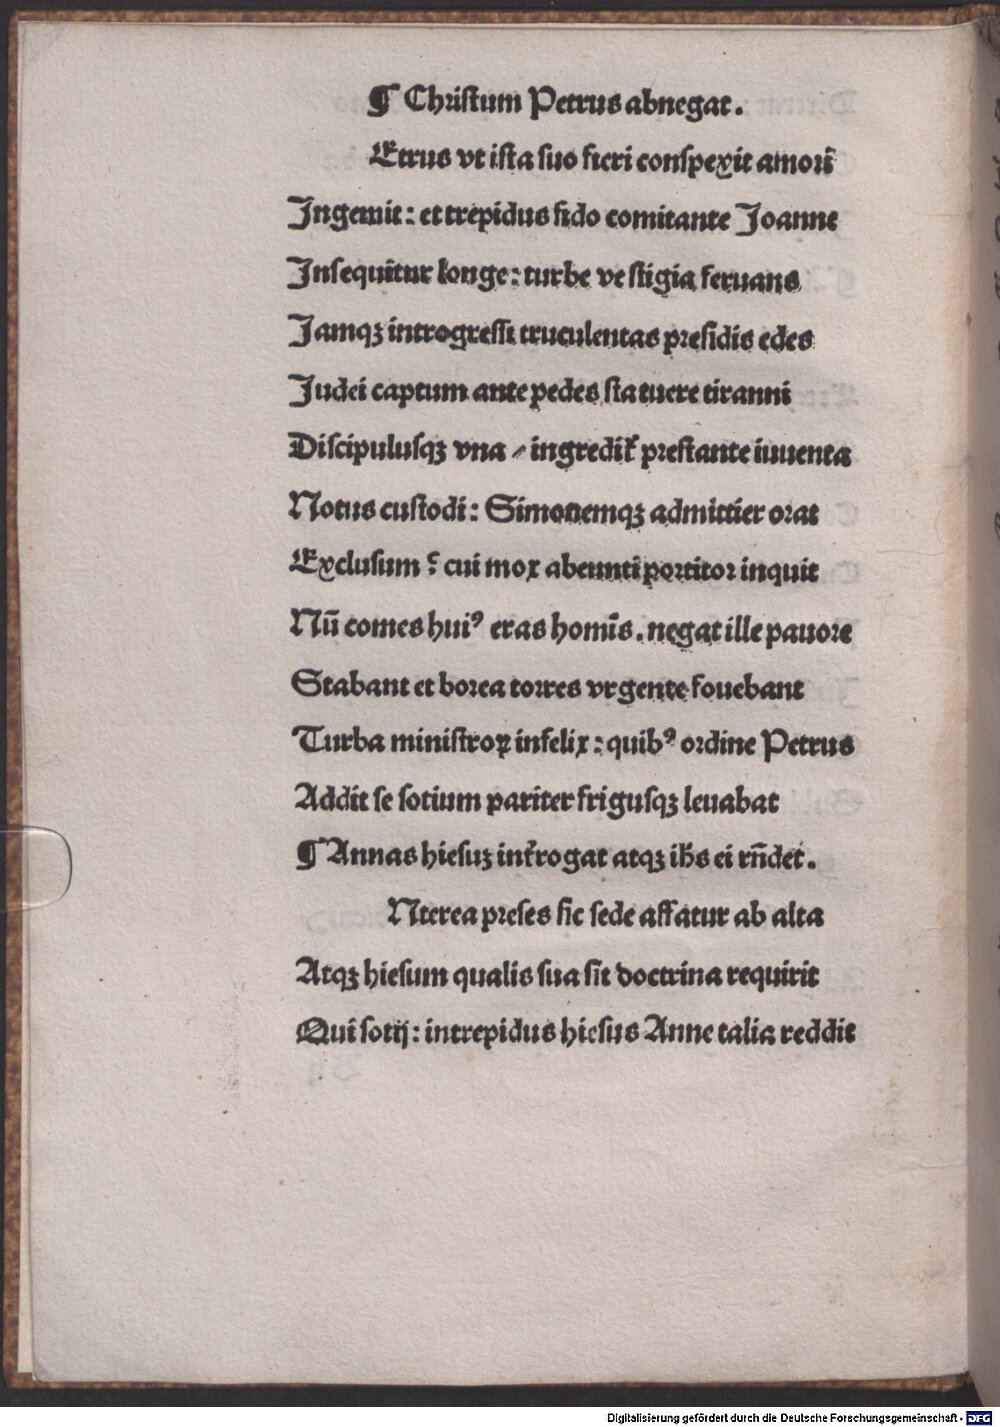 ¶ Chriſtum Petrus abnegat.
Etrus vt iſta ſuo fieri conſpexit amorū
Ingemit: et trepidus fido comitante Joanne
Inſequitur longe: turbe veſtigia ſeruans
Jamqꝫ introgreſſi truculentas preſidis edes
Judei captum ante pedes ſtatuere tiranni
Diſcipuluſqꝫ vna / ingredit̃ preſtante iuuenta
Notus cuſtodi: Simonemqꝫ admittier orat
Excluſum: cui mox abeunti portitor inquit
Nū comes huiꝰ eras homīs. negat ille pauore
Stabant et borea torres vrgente fouebant
Turba miniſtroꝝ infelix: quibꝰ ordine Petrus
Addit ſe ſotium pariter friguſqꝫ leuabat
¶ Annas hieſuꝫ int̃rogat atqꝫ ih̃s ei rn̄det.
Nterea preſes ſic ſede affatur ab alta
Atqꝫ hieſum qualis ſua ſit doctrina requirit
Qui ſotij: intrepidus hieſus Anne talia reddit
Digitalisierung gefördert durch die Deutsche Forschungsgemeinschaft - DFG